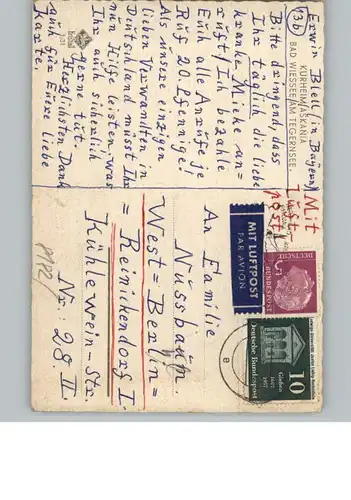 Erwin Bleil (in Bayern)
(13b)
KURHEIM ASKANIA
BAD WIESSEE AM TEGERNSEE
Bitte dringend, dass
Ihr täglich die liebe
kranke Mieke an-
ruft! Ich bezahle
Euch alle Anrufe je
Ruf 20 Pfennige!
Als unsere einzigen
lieben Verwandten in
Deutschland müsst Ihr
nun Hilfe leisten, was
Ihr auch sicherlich
gerne tut.
Herzlichsten Dank
auch für Eure liebe
Karte.
Mit
Luft
post
MIT LUFTPOST
PAR AVION
DEUTSCHE
BUNDESPOST
5
Gießen
1607
1957
Deutsche Bundespost
10
e
An Familie
Nussbaum
West=Berlin=
=Reinickendorf I
Kühlewein-Str.
Nr: 28. II